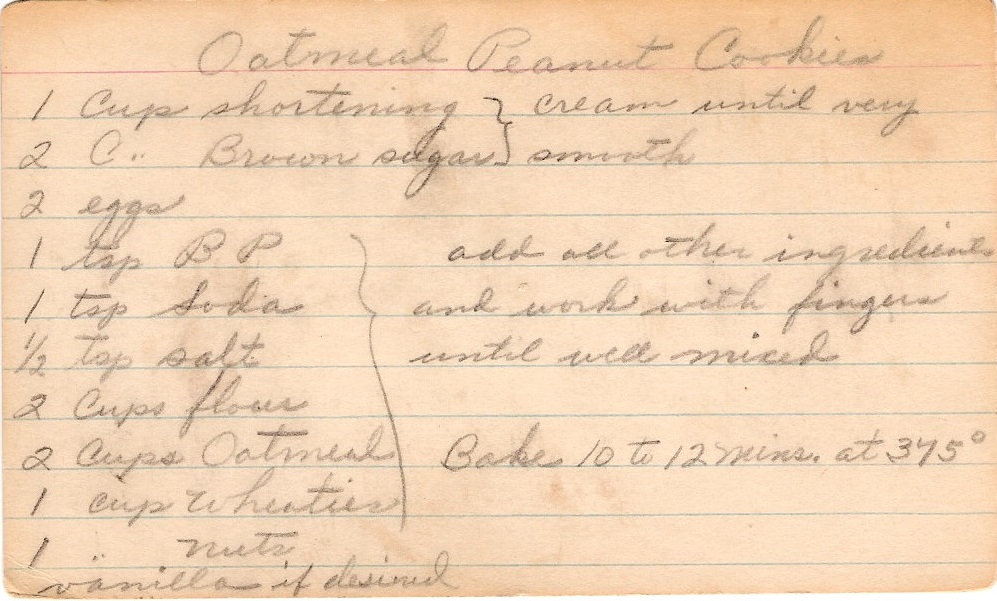 Oatmeal Peanut Cookies
1 Cup shortening } cream until very
2 C " Brown sugar } smooth
2 eggs
1 tsp B P add all other ingredients
1 tsp Soda and work with fingers
1/2 tsp salt until well mixed
2 Cups flour
2 Cups Oatmeal Bake 10 to 12 mins. at 375°
1 cup Wheaties
1 " nuts
vanilla if desired